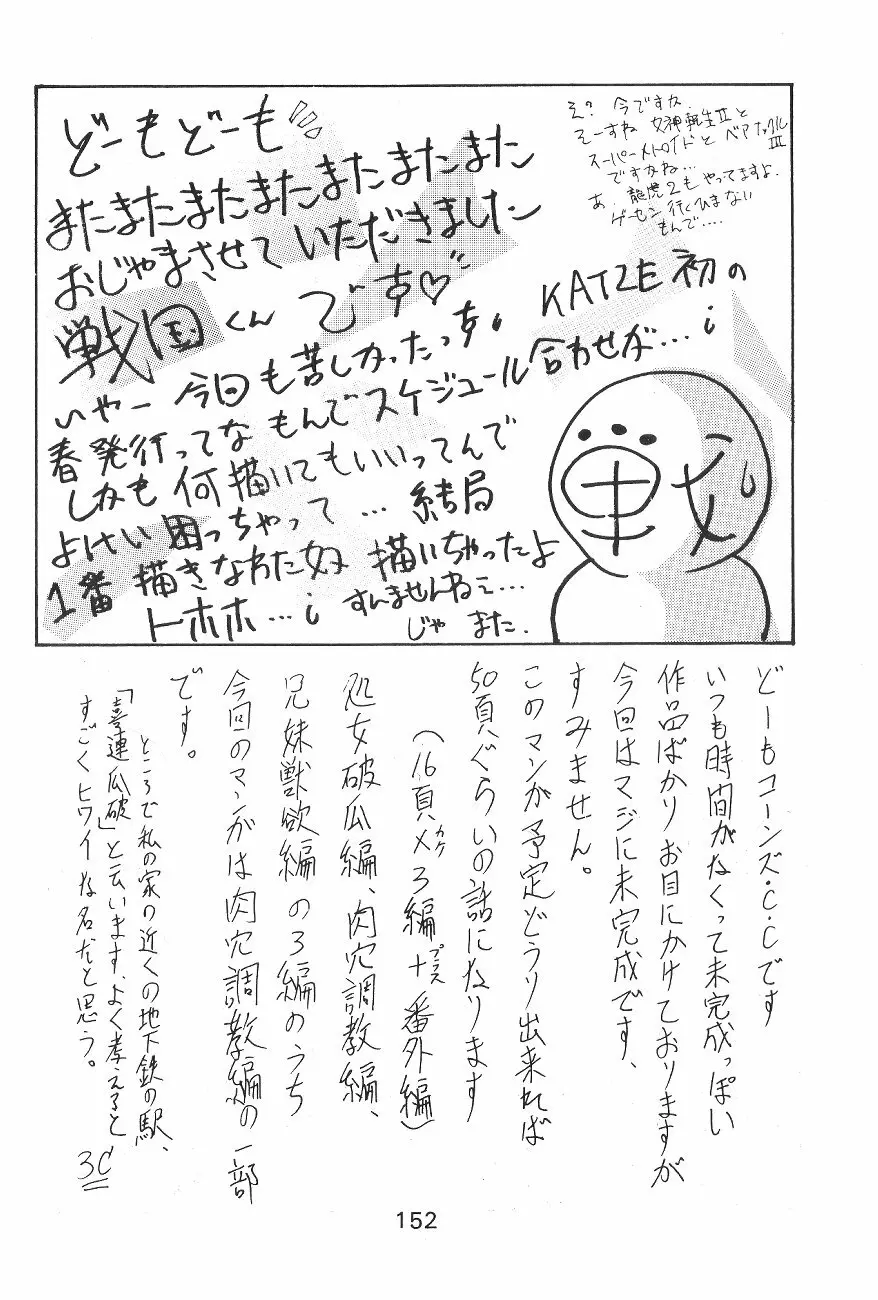 どーもどーも
またまたまたまたまたまたまた
おじゃまさせていただきました
戦国くんです♡
いやー今回も苦しかったっす。KATZE初の
春発行ってなもんでスケジュール合わせが…；
しかも何描いてもいいってんで
よけい困っちゃって…結局
1番描きなれた奴描いちゃったよ
トホホ…；すんませんねェ…
じゃまた.
え？今ですか.
そーすね女神転生Ⅱと
スーパーメトロイドとベアナックルⅢ
ですかね…
あ、龍虎2もやってますよ.
ゲーセン行くひまない
もんで….
どーもコーンズ・C・Cです
いつも時間がなくって未完成っぽい
作品ばかりお目にかけておりますが
今回はマジに未完成です、
すみません。
このマンガ予定どうり出来れば
50頁ぐらいの話になります
（16頁×カケ3編＋プラス番外編）
処女破瓜編、肉穴調教編、
兄妹獣欲編の3編のうち
今回のマンガは肉穴調教編の一部
です。
ところで私の家の近くの地下鉄の駅、
「喜連瓜破」と云います、よく考えると
すごくヒワイな名だと思う。
3C
152